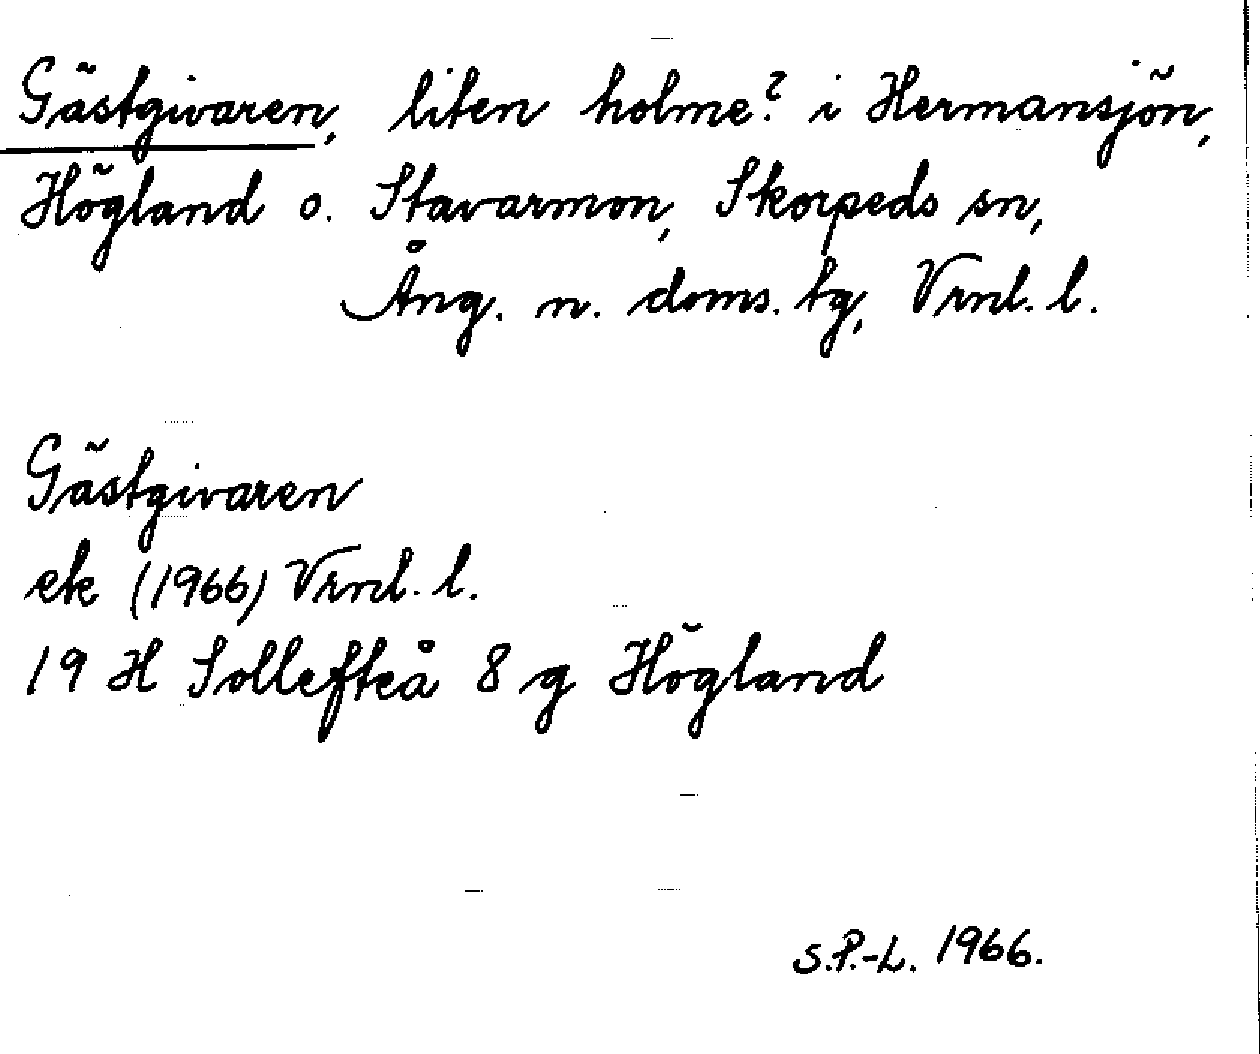 Gästgivaren, liten holme? i Hermansjön,
Högland o. Stavarmon, Skorpeds sn,
Ång. n. doms. tg, Vrnl. l.
Gästgivaren
ek (1966) Vrnl. l.
19 H Sollefteå 8 g Högland
S.P.-L. 1966.